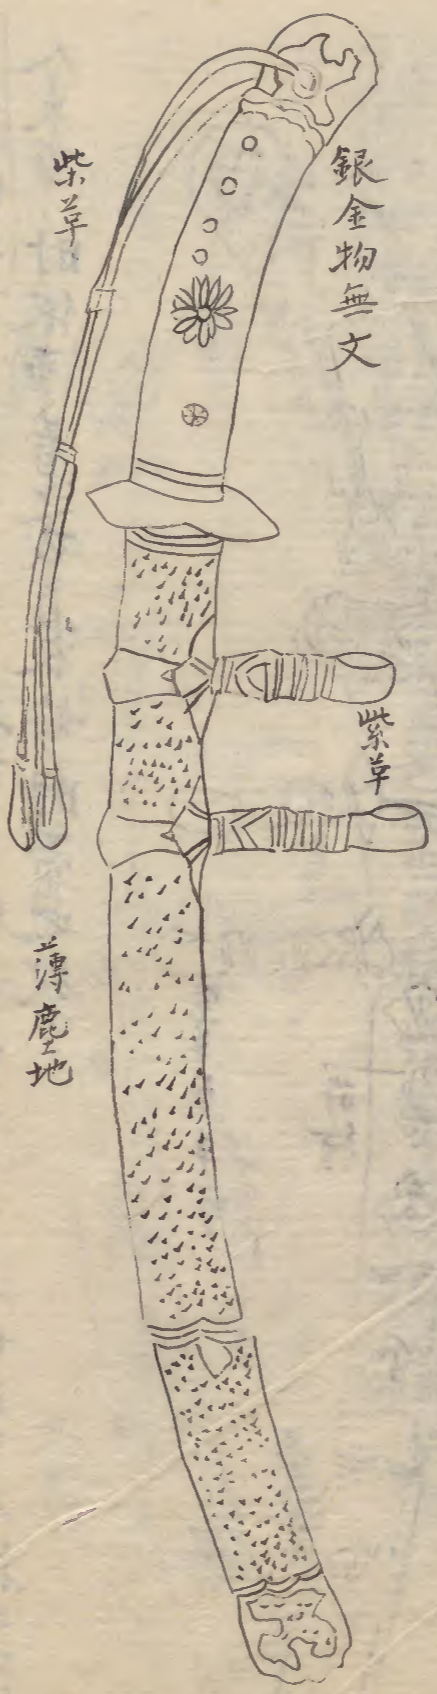 銀金物無文
柴草
紫草
薄塵地